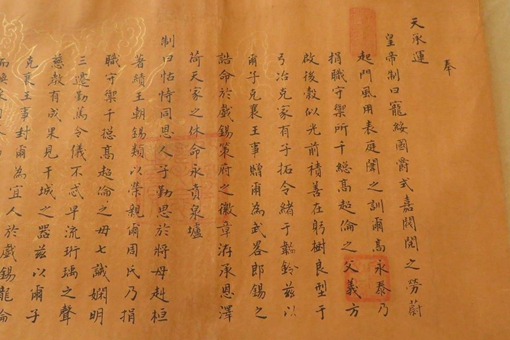 奉
天承運
皇帝制曰寵綏國爵式嘉閥閱之勞蔚
起門風用表庭闈之訓爾高永泰乃
捐職守禦所千總高超倫之父義方
啟後穀似光前積善在躬樹良型于
弓冶克家有子拓令緒于韜鈐茲以
爾子克襄王事贈爾為武畧郎錫之
誥命於戲錫策府之徽章洊承恩澤
荷天家之休命永賁泉壚
制曰怙恃同恩人子勤思於將母赳桓
著績王朝錫類以榮親爾周氏乃捐
職守禦千總高超倫之母七誡嫻明
三遷勤篤令儀不忒早流珩瑀之聲
慈教有成果見干城之器茲以爾子
克襄王事封爾為宜人於戲錫龍綸